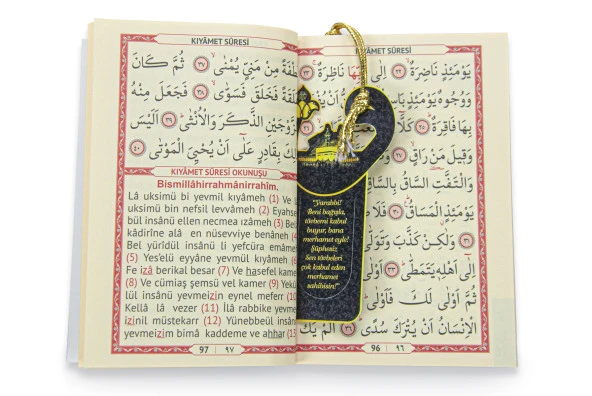 KIYÂMET SÛRESİ
يَوْمَئِذٍ نَاضِرَةٌ ﴿٢٢﴾ اِلٰى رَبِّهَا نَاظِرَةٌ ﴿٢٣﴾
وَوُجُوهٌ يَوْمَئِذٍ
بِهَا فَاقِرَةٌ ﴿٢٥﴾ كَلَّا
وَقِيلَ مَنْ رَاقٍ ﴿٢٧﴾
وَالْتَفَّتِ السَّاقُ بِالسَّاقِ
يَوْمَئِذٍ الْمَسَاقُ ﴿٣٠﴾ فَلَا
﴿٣١﴾ وَلٰكِنْ كَذَّبَ وَتَوَلّٰى
اِلٰٓى اَهْلِهِ يَتَمَطّٰى ﴿٣٣﴾
ثُمَّ اَوْلٰى لَكَ فَاَوْلٰى
الْاِنْسَانُ اَنْ يُتْرَكَ سُدًى ﴿٣٦﴾ اَلَمْ يَكُ
96 | ٩٦
"Yarabbi!
Beni bağışla,
tövbemi kabul
buyur, bana
merhamet eyle!
Şüphesiz
Sen tövbeleri
çok kabul eden
merhamet
sahibisin!"
KIYÂMET SÛRESİ
مِنْ مَنِيٍّ يُمْنٰى ﴿٣٧﴾ ثُمَّ كَانَ
فَخَلَقَ فَسَوّٰى ﴿٣٨﴾ فَجَعَلَ مِنْهُ
الزَّوْجَيْنِ الذَّكَرَ وَالْاُنْثٰى ﴿٣٩﴾ اَلَيْسَ
بِقَادِرٍ عَلٰٓى اَنْ يُحْيِيَ الْمَوْتٰى ﴿٤٠﴾
KIYÂMET SÛRESİ OKUNUŞU
Bismillâhirrahmânirrahîm.
Lâ uksimü bi yevmil kıyâmeh (1) Ve l
uksimü bin nefsil levvâmeh (2) Eyahse
bül insânü ellen necmea ızâmeh (3) Bel
kâdirîne alâ en nüsevviye benâneh (4)
Bel yürîdül insânü li yefcüra emâmeh
(5) Yes'elü eyyâne yevmül kıyâmeh (6)
Fe izâ berikal besar (7) Ve hasefel kamer
(8) Ve cümiaş şemsül vel kamer (9) Yekû
lül insânü yevmeizin eynel meferr (10)
Kellâ lâ vezer (11) İlâ rabbike yevme
izinil müstekarr (12) Yünebbeül insânü
yevmeizin bimâ kaddeme ve ahhar (13)
97 | ٩٧